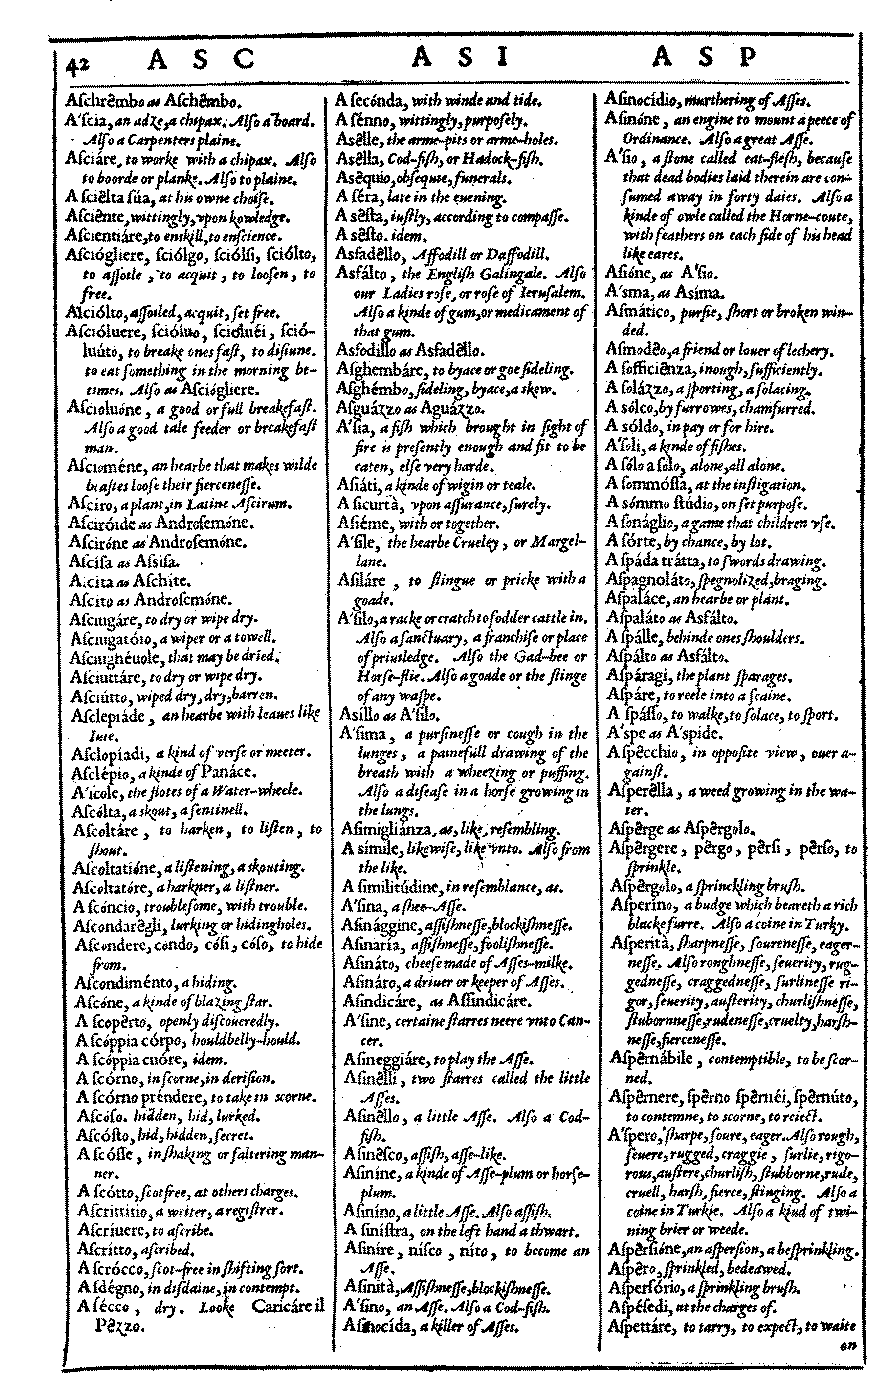 42 A S C A S I A S P
Aſchrêmbo as Aſchêmbo.
A'ſcia, an adze, a chipax. Also a board.
Alſo a Carpenters plaine.
Aſciáre, to worke with a chipax. Alſo
to boorde or planke. Alſo to plaine.
A ſciêlta ſúa, at his owne choiſe.
Aſciênte, wittingly, vpon kowledge.
Aſcientiáre, to enskill, to enſcience.
Aſciógliere, ſciólgo, ſciólſi, ſciólto,
to aſſoile, to acquit, to looſen, to
free.
Aſciólto, aſſoiled, acquit, ſet free.
Aſcióluere, ſcióluo, ſcioluéi, ſció-
luúto, to breake ones faſt, to diſiune.
to eat ſomething in the morning be-
times. Alſo as Aſciógliere.
Aſcioluóne, a good or full breakefaſt.
Alſo a good tale feeder or breakefaſt
man.
Aſcioméne, an hearbe that makes wilde
beaſtes looſe their fierceneſſe.
Aſciro, a plant, in Latine Aſcirum.
Aſciróide as Androſemóne.
Aſciróne as Androſemóne.
Aſciſa as Aſſiſa.
Aſcita as Aſchite.
Aſcito as Androſemóne.
Aſciugáre, to dry or wipe dry.
Aſciugatóio, a wiper or a towell.
Aſciughéuole, that may be dried.
Aſciuttáre, to dry or wipe dry.
Aſciútto, wiped dry, dry, barren.
Aſclepiáde, an hearbe with leaues like
Iuie.
Aſclopiadi, a kind of verſe or meeter.
Aſclépio, a kinde of Panáce.
A'ſcole, the flotes of a Water-wheele.
Aſcólta, a skout, a ſentinell.
Aſcoltáre, to harken, to liſten, to
ſkout.
Aſcoltatióne, a liſtening, a skouting.
Aſcoltatóre, a harkner, a liſtner.
A ſcóncio, troubleſome, with trouble.
Aſcondarêgli, lurking or hidingholes.
Aſcóndere, cóndo, cóſi, cóſo, to hide
from.
Aſcondiménto, a hiding.
Aſcóne, a kinde of blazing ſtar.
A ſcopêrto, openly diſcoueredly.
A ſcóppia córpo, houldbelly-hould.
A ſcóppia cuóre, idem.
A ſcórno, in ſcorne, in deriſion.
A ſcórno préndere, to take in scorne.
Aſcóſo. hidden, hid, lurked.
Aſcóſto, hid, hidden, ſecret.
A ſcóſſe, in ſhaking or faltering man-
ner.
A ſcótto, ſcotfree, at others charges.
Aſcrittitio, a writer, a regiſtrer.
Aſcríuere, to aſcribe.
Aſcrítto, aſcribed.
A ſcrócco, ſcot-free in ſhifting ſort.
A ſdégno, in diſdaine, in contempt.
A ſécco, dry. Looke Caricáre il
Pêzzo.
A ſecónda, with winde and tide.
A ſénno, wittingly, purpoſely.
Asêlle, the arme-pits or arme-holes.
Asêlla, Cod-fiſh, or Hadock-fiſh.
Asêquio, obſequie, funerals.
A ſéra, late in the euening.
A sêſta, iuſtly, according to compaſſe.
A sêſto. idem.
Asfadêllo, Affodill or Daffodill.
Asfálto, the Engliſh Galingale. Alſo
our Ladies roſe, or roſe of Ieruſalem.
Alſo a kinde of gum, or medicament of
that gum.
Asfodíllo as Asfadêllo.
Aſghembáre, to byace or goe ſideling.
Aſghémbo, ſideling, byace, a skew.
Aſguázzo as Aguázzo.
A'ſia, a fiſh which brought in ſight of
fire is preſently enough and fit to be
eaten, elſe very harde.
Aſiáti, a kinde of wigin or teale.
A ſicurtà, vpon aſſurance, ſurely.
Aſiéme, with or together.
A'ſile, the hearbe Crueley, or Margel-
lane.
Aſiláre, to ſtingue or pricke with a
goade.
A'ſilo, a racke or cratch to fodder cattle in.
Alſo a ſanctuary, a franchiſe or place
of priuiledge. Alſo the Gad-bee or
Horſe-flie. Alſo a goade or the ſtinge
of any waſpe.
Asíllo as A'ſilo.
A'ſima, a purſineſſe or cough in the
lunges, a painefull drawing of the
breath with a wheezing or puffing.
Alſo a diſeaſe in a horſe growing in
the lungs.
Aſimigliánza, as, like, reſembling.
A símile, likewiſe, like vnto. Alſo from
the like.
A ſimilitúdine, in reſemblance, as.
A'ſina, a ſhee-Aſſe.
Aſinággine, aſſiſhneſſe, blockiſhneſſe.
Aſinaría, aſſiſhneſſe, fooliſhneſſe.
Aſináto, cheeſe made of Aſſes-milke.
Aſináro, a driuer or keeper of Aſſes.
Aſindicáre, as Aſſindicáre.
A'ſine, certaine ſtarres neere vnto Can-
cer.
Aſineggiáre, to play the Aſſe.
Aſinêlli, two ſtarres called the little
Aſſes.
Aſinêllo, a little Aſſe. Alſo a Cod-
fiſh.
Aſinêſco, aſſiſh, aſſe-like.
Aſiníne, a kinde of Aſſe-plum or horſe-
plum.
Aſiníno, a little Aſſe. Alſo aſſiſh.
A ſiniſtra, on the left hand a thwart.
Aſiníre, níſco, níto, to become an
Aſſe.
Aſinità, Aſſiſhneſſe, blockiſhneſſe.
A'ſino, an Aſſe. Alſo a Cod-fiſh.
Aſinocída, a killer of Aſſes.
Aſinocídio, murthering of Aſſes.
Aſinóne, an engine to mount a peece of
Ordinance. Alſo a great Aſſe.
A'ſio, a ſtone called eat-fleſh, becauſe
that dead bodies laid therein are con-
ſumed away in forty daies. Alſo a
kinde of owle called the Horne-coute,
with feathers on each ſide of his head
like eares.
Aſióne, as A'ſio.
A'sma, as Asima.
Aſmático, purſie, ſhort or broken win-
ded.
Aſmodêo, a friend or louer of lechery.
A ſofficiênza, inough, ſufficiently.
A ſolázzo, a ſporting, a ſolacing.
A sólco, by furrowes, chamfurred.
A sóldo, in pay or for hire.
A'ſoli, a kinde of fiſhes.
A ſólo a ſólo, alone, all alone.
A ſommóſſa, at the inſtigation.
A sómmo ſtúdio, on ſet purpoſe.
A ſonáglio, a game that children vſe.
A ſórte, by chance, by lot.
A ſpáda trátta, to ſwords drawing.
Aſpagnoláto, ſpegnolized, braging.
Aſpaláce, an hearbe or plant.
Aſpaláto as Asfálto.
A ſpálle, behinde ones ſhoulders.
Aſpálto as Asfálto.
Aſpáragi, the plant ſparages.
Aſpáre, to reele into a ſcaine.
A ſpáſſo, to walke, to ſolace, to ſport.
A'ſpe as A'ſpide.
Aſpêcchio, in oppoſite view, ouer a-
gainſt.
Aſperêlla, a weed growing in the wa-
ter.
Aſpêrge as Aſpêrgolo.
Aſpêrgere, pêrgo, pêrſi, pêrſo, to
ſprinkle.
Aſpêrgolo, a ſprinckling bruſh.
Aſperíno, a budge which beareth a rich
blacke furre. Alſo a coine in Turky.
Aſperità, ſharpneſſe, ſoureneſſe, eager-
neſſe. Alſo roughneſſe, ſeuerity, rug-
gedneſſe, craggedneſſe, ſurlineſſe ri-
gor, ſeuerity, auſterity, churliſhneſſe,
ſtubornneſſe, rudeneſſe, cruelty, harſh-
neſſe, fierceneſſe.
Aſpêrnábile, contemptible, to be ſcor-
ned.
Aſpêrnere, ſpêrno ſpêrnéi, ſpêrnúto,
to contemne, to scorne, to reiect.
A'ſpero, ſharpe, ſoure, eager. Alſo rough,
ſeuere, rugged, craggie, ſurlie, rigo-
rous, auſtere, churliſh, ſtubborne, rude,
cruell, harſh, fierce, ſtinging. Alſo a
coine in Turkie. Alſo a kind of twi-
ning brier or weede.
Aſpêrſióne, an aſperſion, a beſprinkling.
Aſpêro, ſprinkled, bedeawed.
Aſperſório, a ſprinkling bruſh.
Aſpéſedi, at the charges of.
Aſpettáre, to tarry, to expect, to waite